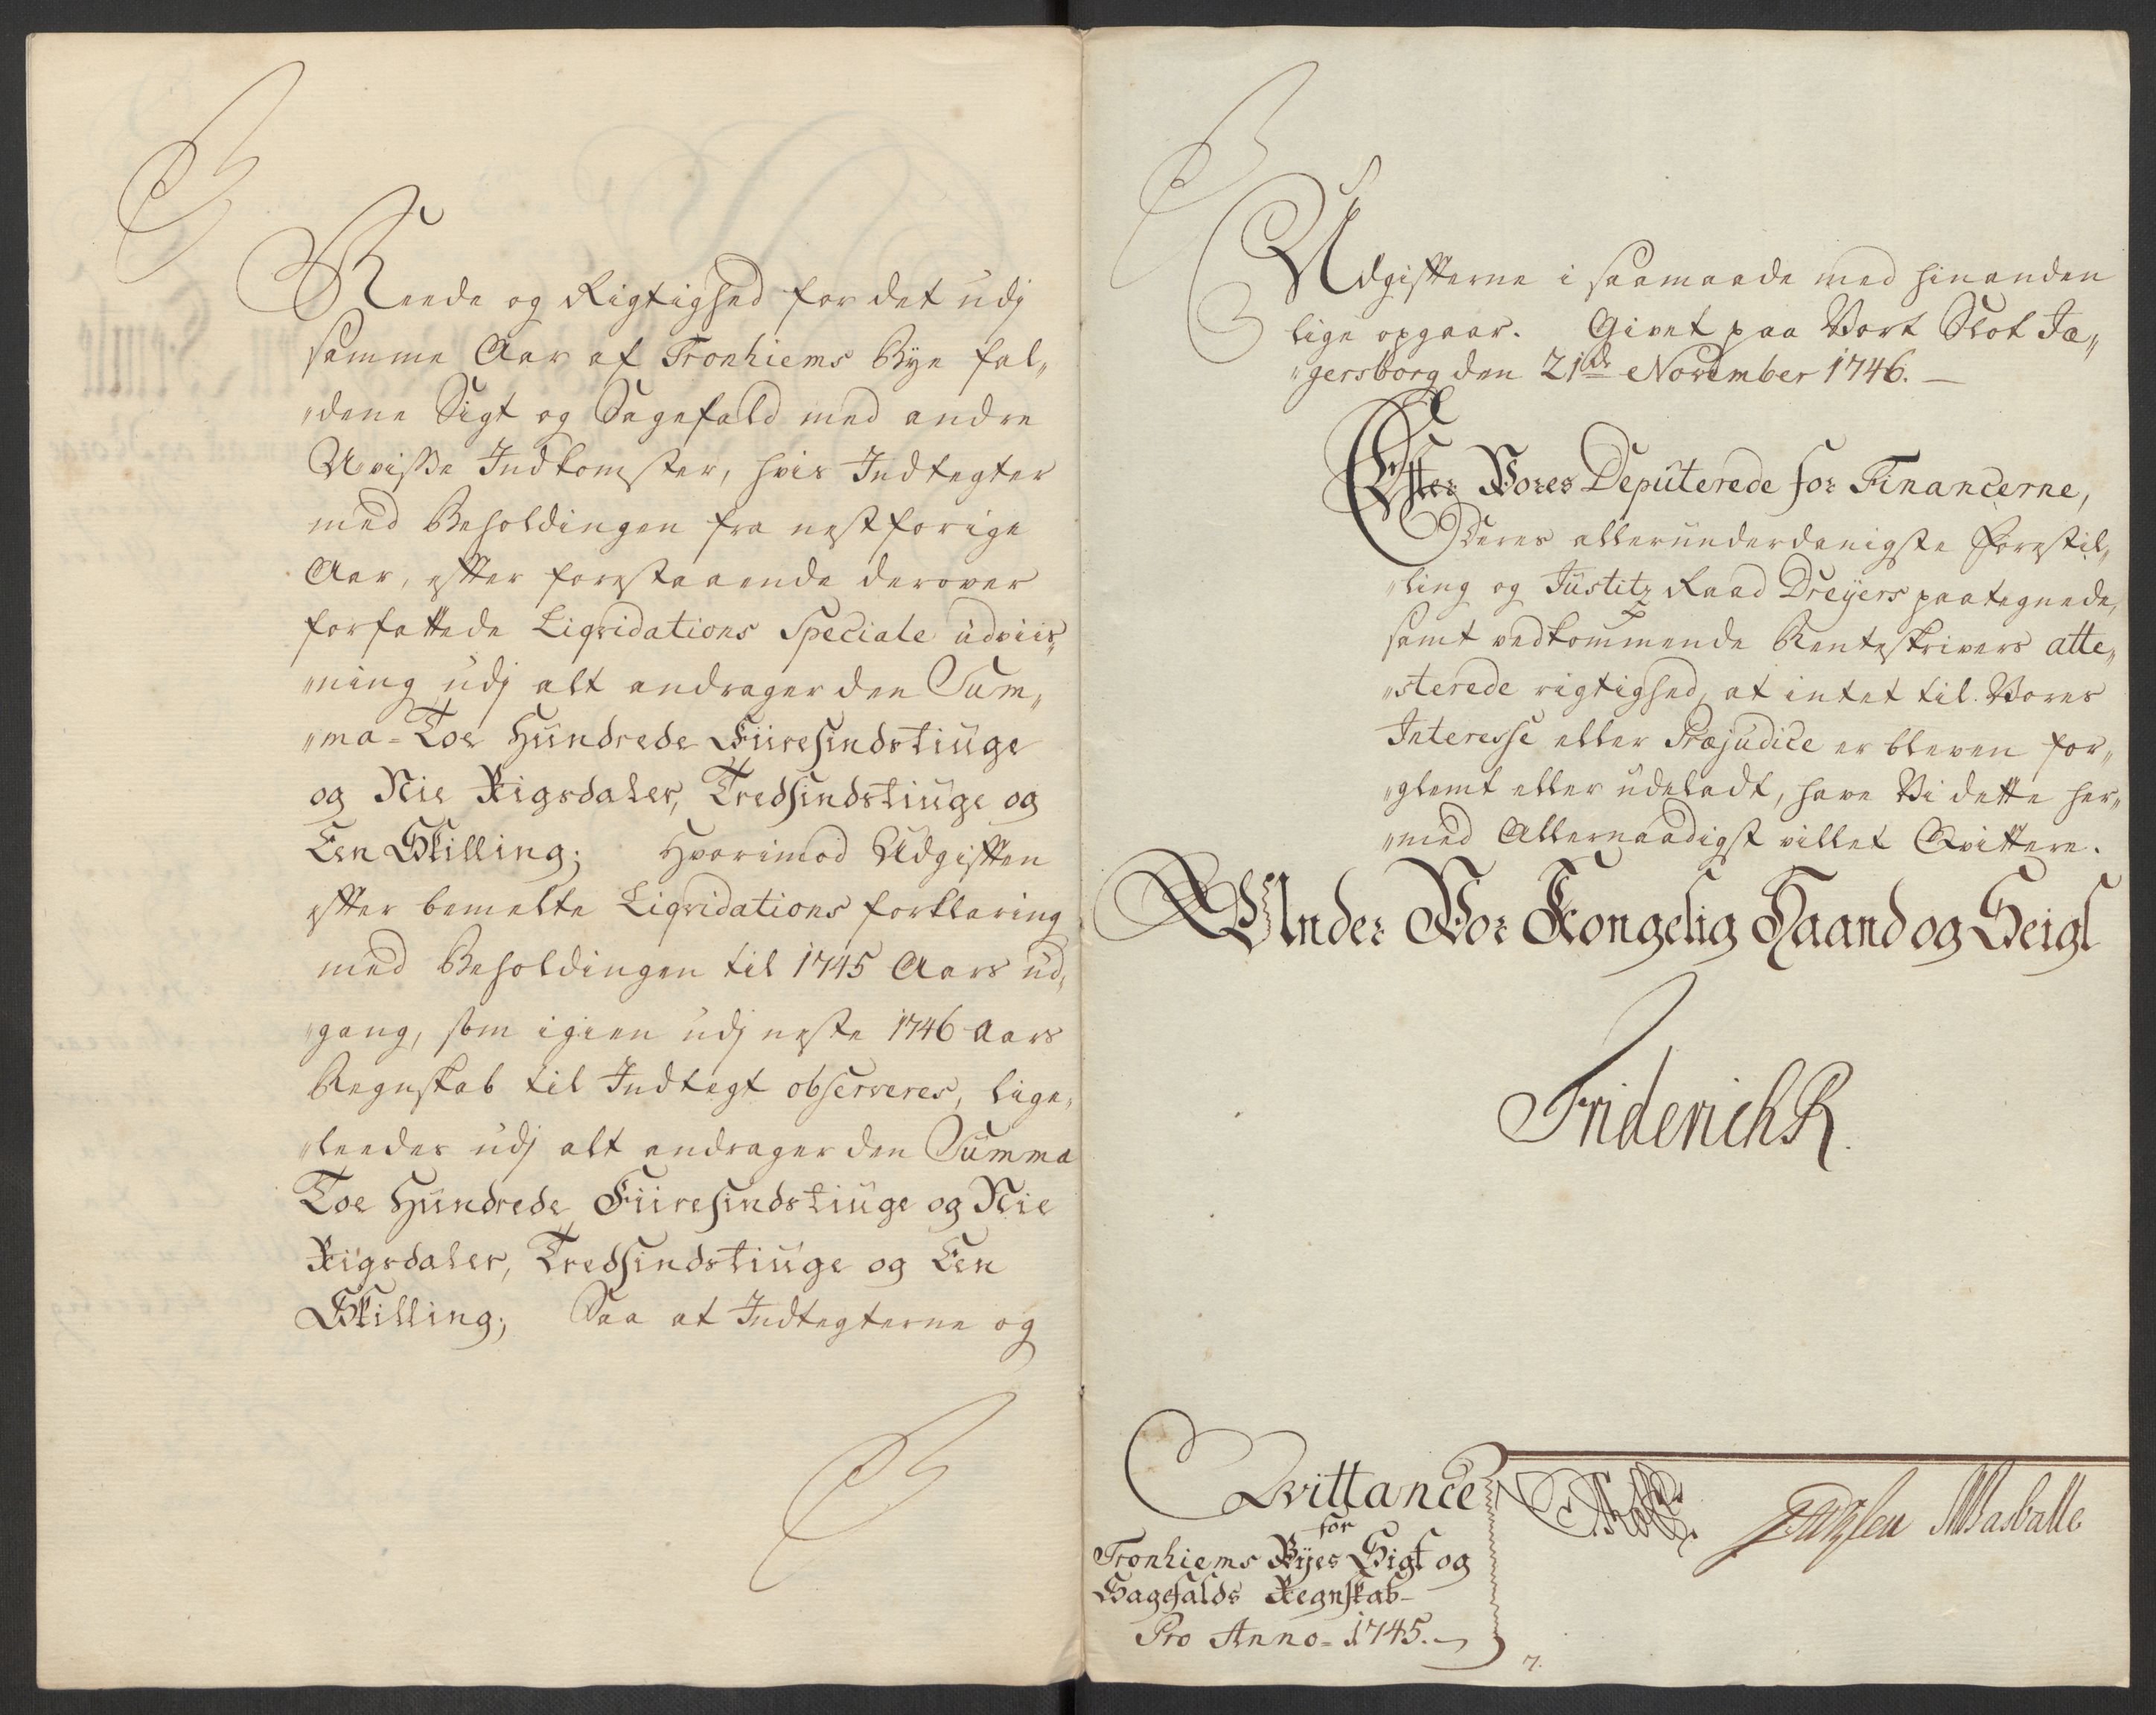 Reede og Rigtighed for det udj
samme Aar af Tronhiems Bye fal„
„dene Sigt og Sagefald med andre
Uvisse Indkomster, hvis Indtegter
med Beholdingen fra nestforige
Aar, efter forestaaende derover
forfattede Liqvidations Speciale udviis„
„ning udj alt andrager den Sum„
„ma = Toe Hundrede Fiiresindstiuge
og Nie Rigsdaler, Tredsindstiuge og
Een Skilling; Hvorimod Udgiften
efter bemelte Liqvidations forklaring
med Beholdingen til 1745 Aars ud„
„gang, som igien udj neste 1746 Aars
Regnskab til Indtegt observeres, lige„
„leedes udj alt andrager den Summa
Toe Hundrede Fiiresindstiuge og Nie
Rigsdaler, Tredsindstiuge og Een
Skilling; Saa at Indtegterne og
Udgifterne i saamaade med hinanden
lige opgaar. Givet paa Vort Slot Jæ„
„gersborg den 21de November 1746. —
Efter Vores Deputerede for Financerne,
Deres allerunderdanigste Forestil„
„ling og Justitz Raad Dreyers paategnede,
samt vedkommende Renteskrivers atte„
„sterede rigtighed, at intet til Vores
Interesse eller Præjudice er bleven for„
„glemt eller udeladt, have Vi dette her„
„med Allernaadigst villet Qvittere.
Under Vor Kongelig Haand og Seigl
Friderich R.
Qvittance
for
Tronhiems Byes Sigt og
Sagefalds Regnskab
Pro Anno = 1745.
7.